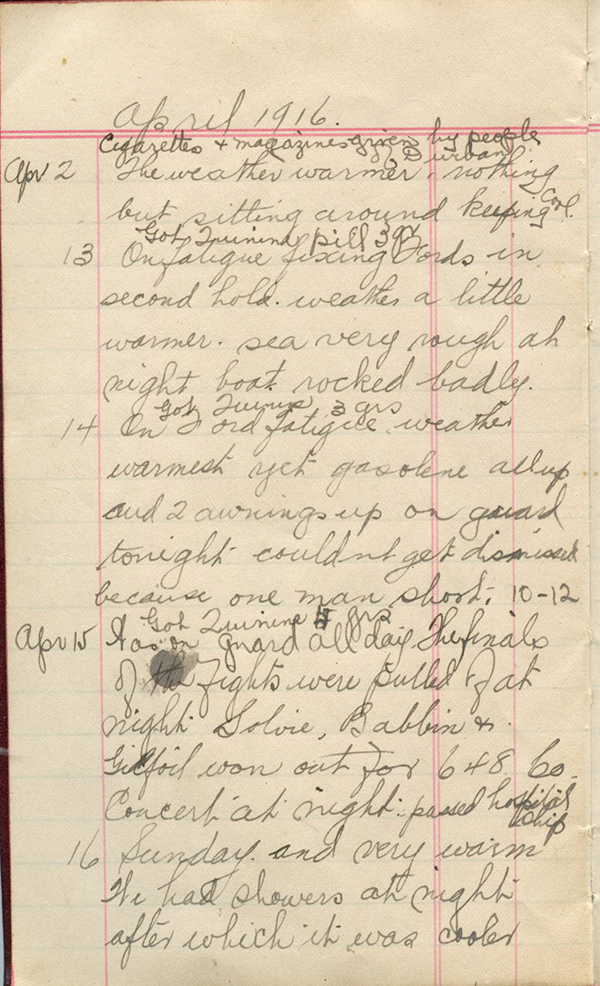 April 1916.
Cigarettes + magazines given by people
of Durban
Apr 2 The weather warmer. nothing
but sitting around keeping cool.
Got Quinine pill 3 gr
13 On fatigue fixing Fords in
second hold. weather a little
warmer. sea very rough at
night boat rocked badly.
Got Quinine 3 grs
14 On Ford fatigue weather
warmest yet gasolene all up
and 2 awnings up on guard
tonight couldnt get dismissed
because one man short. 10-12
Got Quinine 4 grs
Apr 15 Was on guard all day The finals
of the fights were pulled of at
night. Solvie, Babbin &
Gilfoil won out for 648 Co.
Concert at night. passed hospital
ship
16 Sunday. and very warm
We had showers at night
after which it was cooler